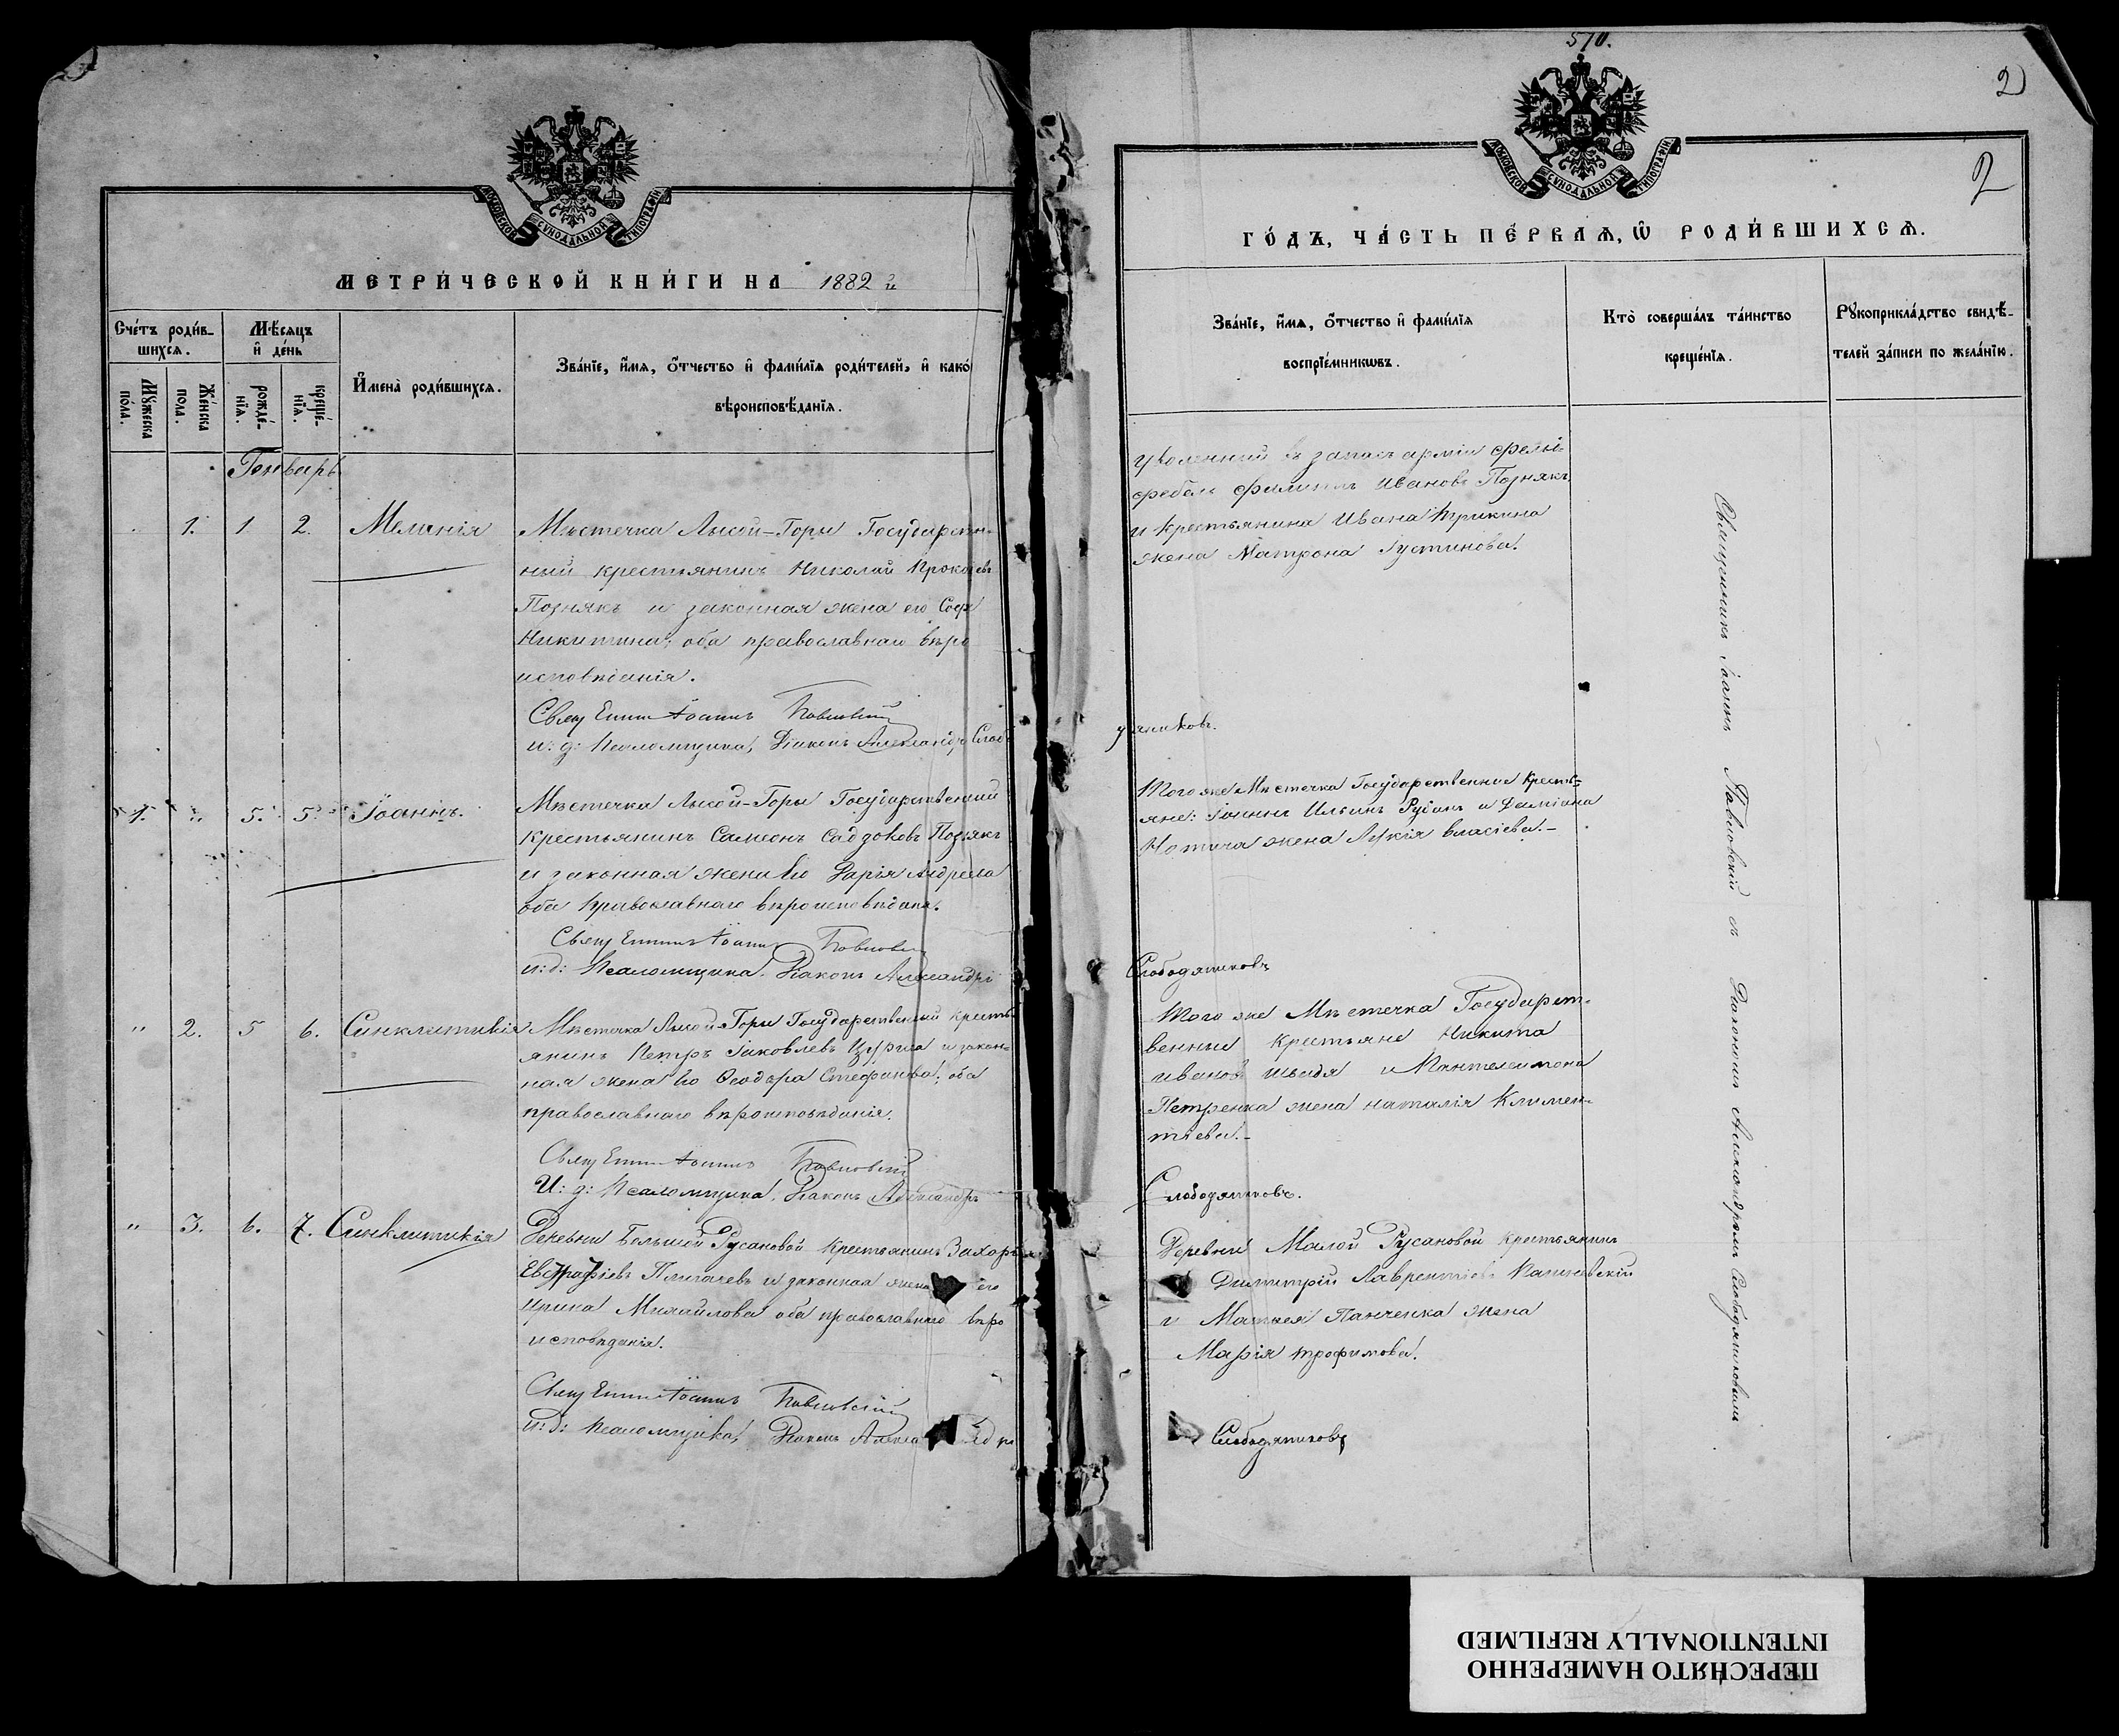 570.
2
2
МОСКОВСКОЙ СУНОДАЛЬНОЙ ТИПОГРАФІИ
МОСКОВСКОЙ СУНОДАЛЬНОЙ ТИПОГРАФІИ
МЕТРИ́ЧЕСКОЙ КНИ́ГИ НА 1882 й
ГО́ДЪ, ЧА́СТЬ ПЕ́РВАѦ, Ѡ РОДИ́ВШИХСѦ.
Сче́тъ роди́в-
шихсѧ.
Мꙋ́жеска
по́ла.
Же́нска
пола.
Мѣ́сѧцъ
и҆ де́нь
рожде́-
нїѧ.
креще́-
нїѧ.
И҆мена̀ роди́вшихсѧ.
Зва́нїе, и҆́мѧ, ѻ҆́тчество и҆ фами́лїѧ роди́телей, и҆ како́
вѣроисповѣ́данїѧ.
Зва́нїе, и҆́мѧ, ѻ҆́тчество и҆ фами́лїѧ
воспрїе́мникѡвъ.
Кто̀ соверша́лъ та́инство
креще́нїѧ.
Рꙋкоприкла́дство свидѣ́-
телей за́писи по жела́нїю.
Генварь
1. 1 2. Меланія
Мѣстечка Лысой-Горы Государствен-
ный крестьянинъ Николай Прокоѳьевъ
Познякъ и законная жена его Соф
Никитина; оба православнаго вѣро
исповѣданія.
Свящ Іоаннъ Павловскій
и: д: Псаломщика, Діаконъ Александръ Слобо
Уволенный въ запасъ арміи фельд-
фебель Филиппъ Ивановъ Познякъ
и крестьянина Ивана Трикина
жена Матрона Іустинова.
дяниковъ.
1. " 5. 5. Іоаннъ.
Мѣстечка Лысой-Горы Государственный
крестьянинъ Самсонъ Саддоковъ Познякъ
и законная жена его Дарія Андреева
оба православнаго вѣроисповѣданія.
Свящ Іоаннъ Павловскій
и: д: Псаломщика. Діаконъ Александръ
Того же Мѣстечка Государственные кресть-
яне: Іоаннъ Ильинъ Рудикъ и Даміана
жена Лукія Власіева.-
Слободяниковъ
" 2. 5 6. Синклитикія
Мѣстечка Лысой-Горы Государственный кресть-
янинъ Петръ Іаковлевъ и закон-
ная жена его Ѳеодора Стефанова; оба
православнаго вѣроисповѣданія.
Свящ Іоаннъ Павловскій
И: д: Псаломщика. Діаконъ Александръ
Того же Мѣстечка Государст-
венные крестьяне Никита
Ивановъ и Пантелеимона
Петренка жена Наталія Климен-
тіева.-
Слободяниковъ.
" 3. 6. 7. Синклитикія
Деревни Большой Русановой крестьянинъ Захарі
Евстафіевъ и законная жена его
Ирина Михайлова оба православнаго вѣро
исповѣданія.
Свящ Іоаннъ Павловскій
и: д: Псаломщика, Діаконъ Алекса ндръ
Деревни Малой Русановой крестьянинъ
Димитрій Лаврентіевъ
и Матѳея Панченка жена
Марія Трофимова.
Слободяниковъ
Священникъ Іоаннъ Павловскій съ Діакономъ Александромъ Слободяниковымъ
ПЕРЕСНЯТО НАМЕРЕННО
INTENTIONALLY REFILMED